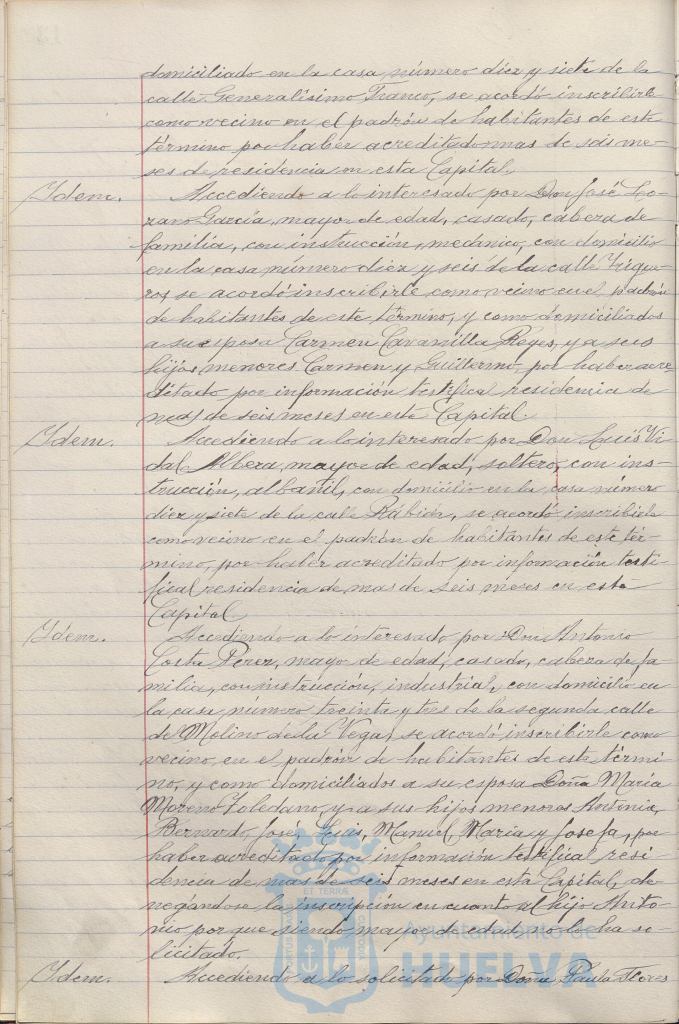 domiciliado en la casa número diez y siete de la
calle Generalísimo Franco, se acordó inscribirle
como vecino en el padrón de habitantes de este
término por haber acreditado mas de seis me-
ses de residencia en esta Capital.
Idem. Accediendo a lo interesado por Don José Lo-
zano García, mayor de edad, casado, cabeza de
familia, con instrucción, mecánico, con domicilio
en la casa número diez y seis de la calle Trigue-
ros se acordó inscribirle como vecino en el padrón
de habitantes de este término, y como domiciliados
a su esposa Carmen Reyes, y a sus
hijos menores Carmen y Guillermo, por haber acre-
ditado por información testifical residencia de
mas de seis meses en esta Capital.
Idem. Accediendo a lo interesado por Don Luis Vi-
dal Albera, mayor de edad, soltero, con ins-
trucción, albañil, con domicilio en la casa número
diez y siete de la calle Rábida, se acordó inscribirle
como vecino en el padrón de habitantes de este tér-
mino, por haber acreditado por información testi-
fical residencia de mas de seis meses en esta
Capital
Idem. Accediendo a lo interesado por Don Antonio
Costa Perez, mayo de edad, casado, cabeza de fa-
milia, con instrucción, industrial, con domicilio en
la casa numero treinta y tres de la segunda calle
de Molino de la Vega, se acordó inscribirle como
vecino en el padrón de habitantes de este térmi-
no, y como domiciliados a su esposa Doña María
Moreno Toledano, y a sus hijos menores Antonia,
Bernardo, José, Luis, Manuel, María y Josefa, por
haber acreditado por información testifical resi-
dencia de mas de seis meses en esta Capital, de-
negándose la inscripción en cuanto al hijo Anto-
nio, por que siendo mayor de edad, no lo ha so-
licitado.
Idem. Accediendo a lo solicitado por Doña Paula Flores
Ayuntamiento de
HUELVA